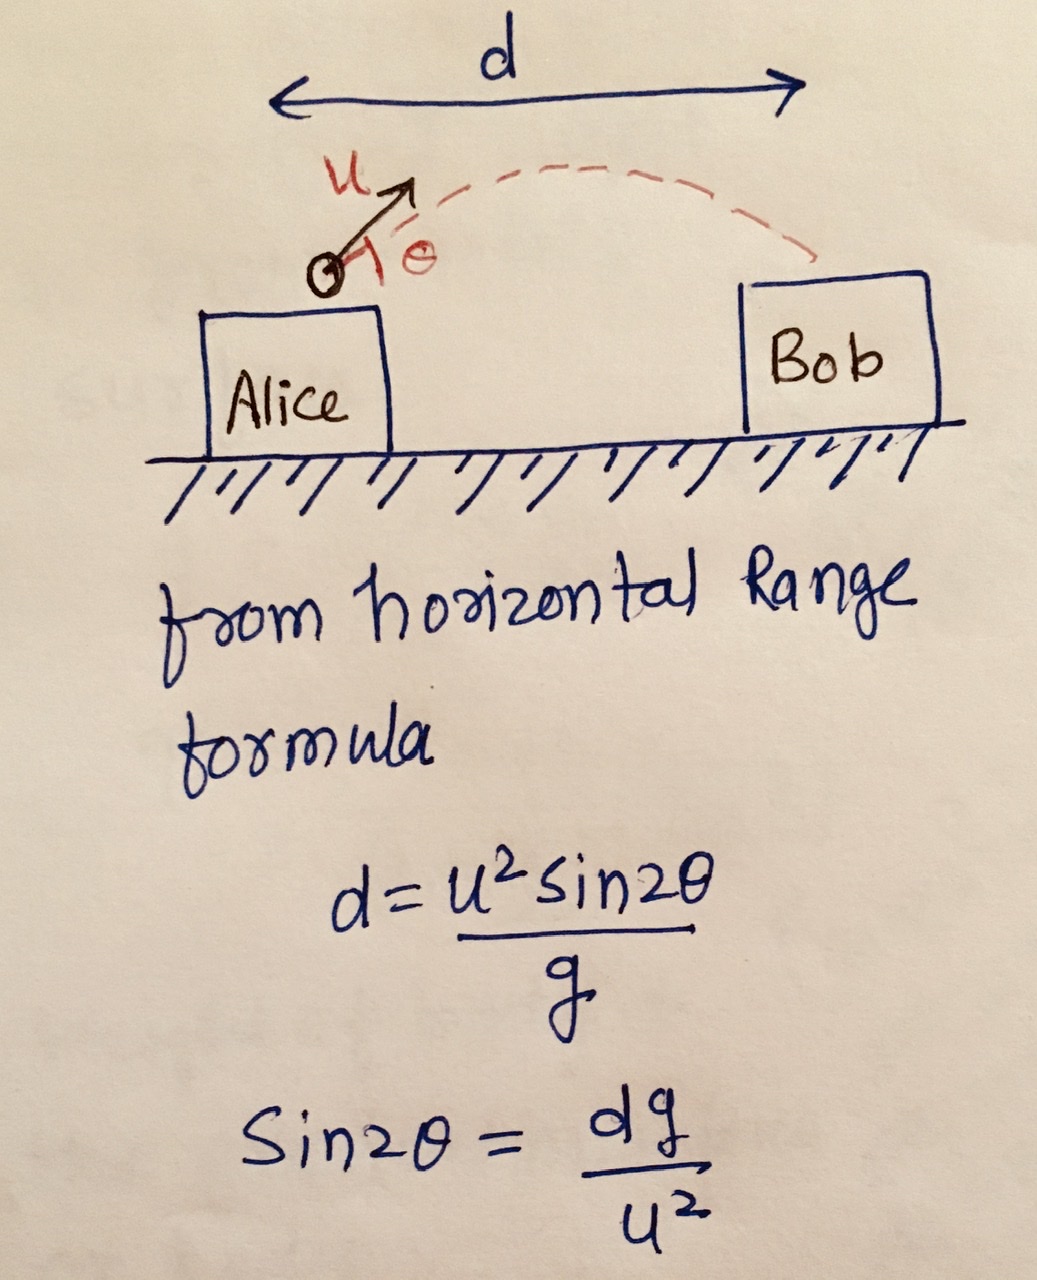 d
u
θ
Alice
Bob
from horizontal Range
formula
d = u² sin2θ / g
Sin2θ = dg / u²